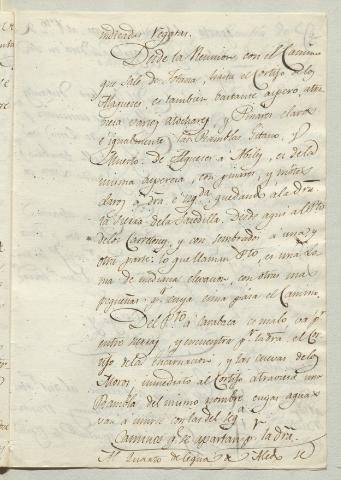 indicadas Veguas.
Desde la Reunion con el Camino
que sale de Totana, hasta el Cortijo de los
Alagueces, es tambien bastante aspero, atra
viesa varios atochares, y Pinares claros
é igualmente las Ramblas Gitano, y
Muerto. de Algueces á Abily, es de la
misma aspereza, con pinares, y montes
claros á dra. é izqda. quedando á la dra.
la sierra de la Taedilla. Desde aqui al Pto.
de los Carretones, y con sembrados á una y
otra parte: lo que llaman Pto. es una Lo
ma de mediana elevacion, con otras mas
pequeñas pr. encima pasa el Camino.
Del Pto. á Caravaca es malo, va pr.
entre sierras, y encuentra pr. la dra. el Cor
tijo de la Encarnacion, y las cuevas de los
Moros, inmediato al Cortijo atraviesa una
Rambla del mismo nombre, cuyas aguas
van á unirse con las del
Caminos q. se apartan pr. la dra.
Al Quarto de legua de Aledo se